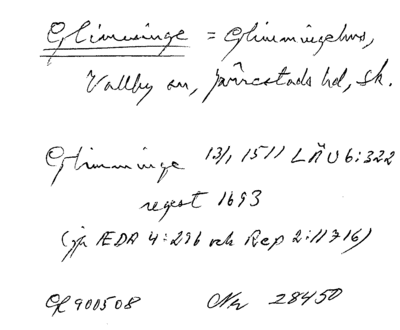 Glimminge = Glimmingehus,
Vallby sn, Järrestads hd, Sk.
Glimminge 13/1 1511 LÄU 6:322
regest 1693
(jfr ÆDA 4:296 och Rep 2:11716)
CR 900508 Nr 28450